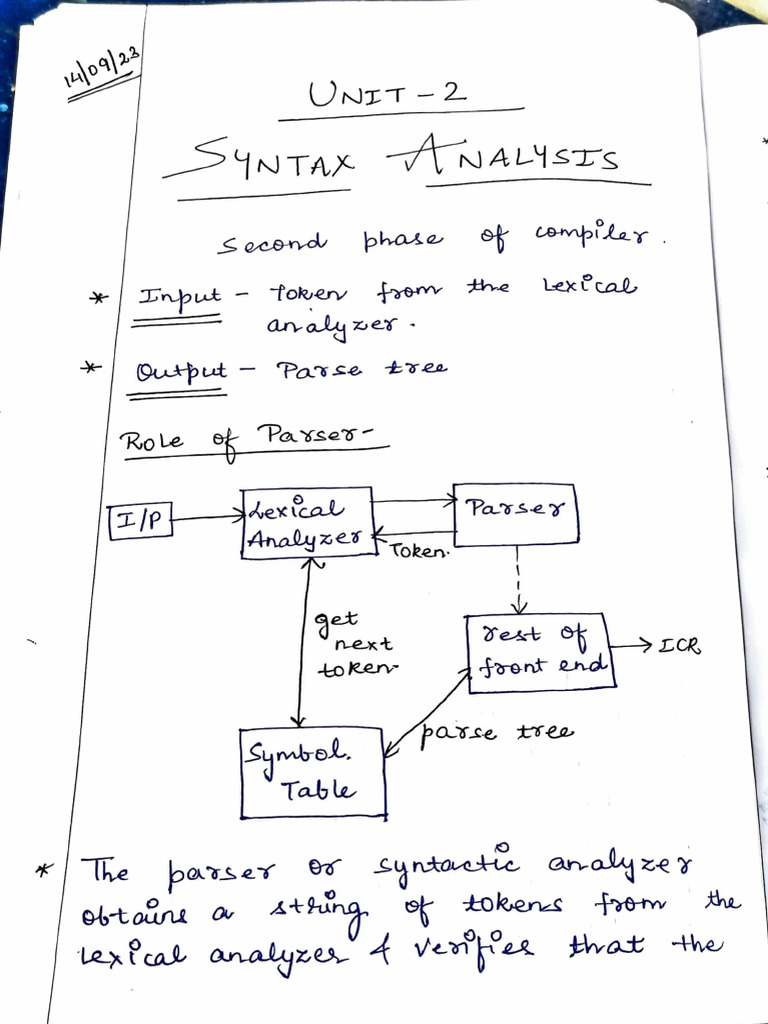 14/09/23
UNIT-2
SYNTAX ANALYSIS
Second phase of compiler.
* Input - Token from the Lexical
analyzer.
* Output - Parse tree
Role of Parser-
I/P
Lexical
Analyzer
Parser
Token.
get
next
token
rest of
front end
ICR
parse tree
Symbol.
Table
* The parser or syntactic analyzer
obtains a string of tokens from the
lexical analyzer & verifies that the